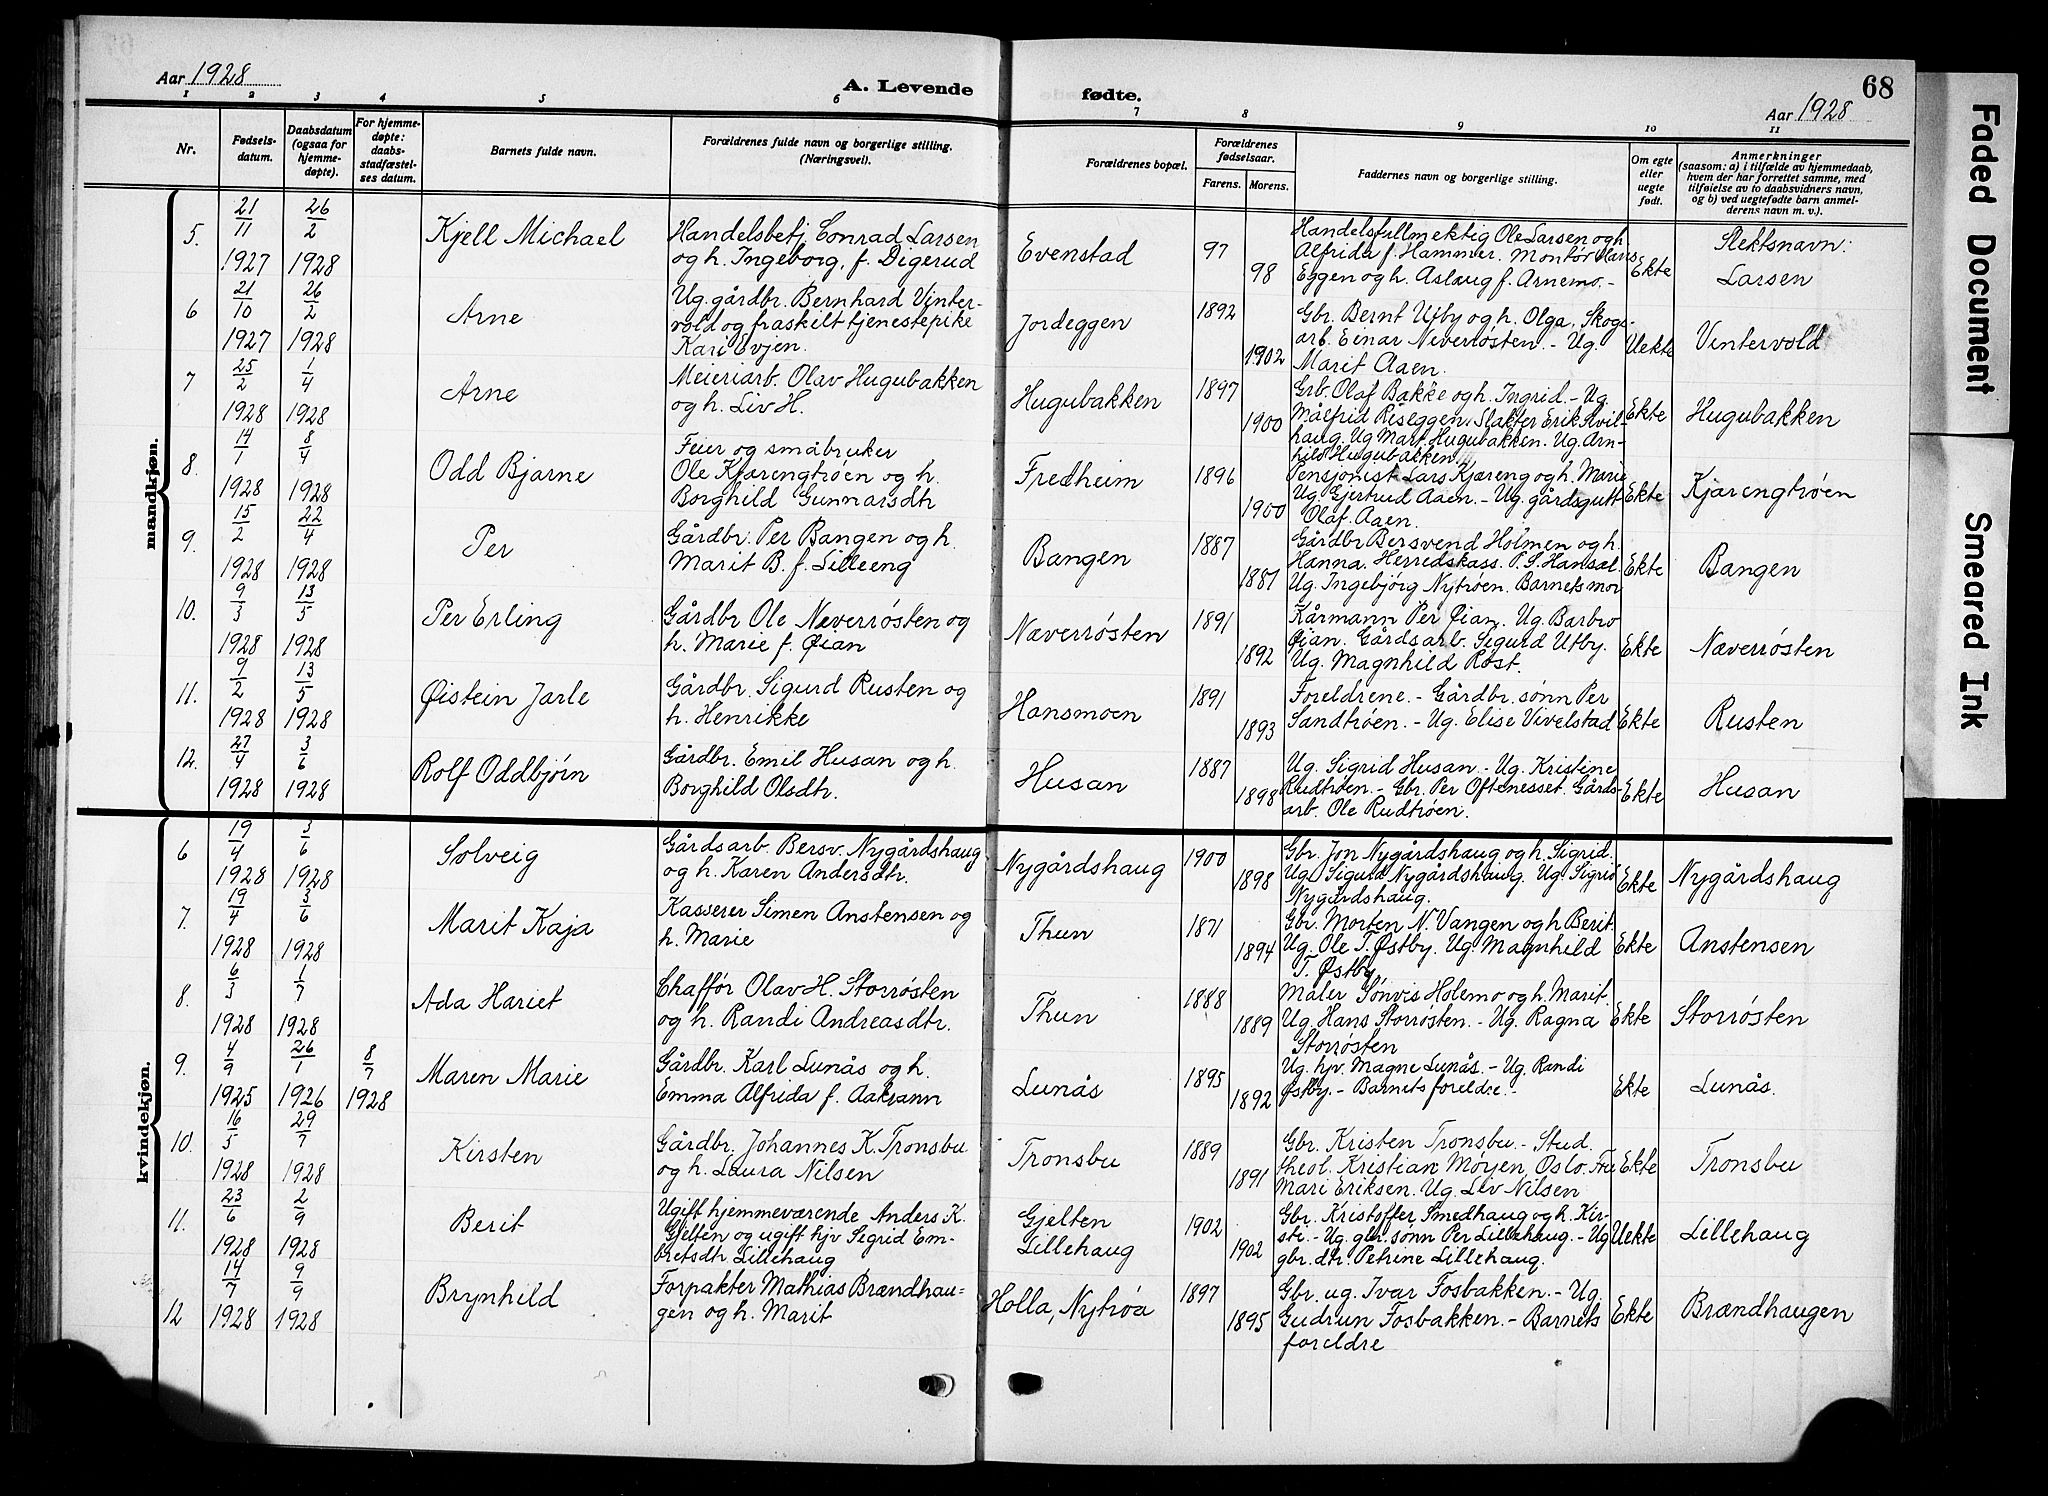 Aar 1928
A. Levende fødte.
68
Aar 1928
1 2 3 4 5 6 7 8 9 10 11
Nr.
Fødsels-
datum.
Daabsdatum
(ogsaa for
hjemme-
døpte).
For hjemme-
døpte:
daabs-
stadfæstel-
ses datum.
Barnets fulde navn.
Forældrenes fulde navn og borgerlige stilling.
(Næringsvei).
Forældrenes bopæl.
Forældrenes
fødselsaar.
Farens. Morens.
Faddernes navn og borgerlige stilling.
Om egte
eller
uegte
født.
Anmerkninger
(saasom: a) i tilfælde av hjemmedaab,
hvem der har forrettet samme, med
tilføielse av to daabsvidners navn,
og b) ved uegtefødte barn anmel-
derens navn m. v.).
mandkjøn.
5.
21/11 1927
26/2 1928
Kjell Michael
Handelsbetj Conrad Larsen
og h. Ingeborg, f. Digerud
Evenstad
97
98
Handelsfullmektig Ole Larsen og h.
Alfrida f. Hammer. Montør Hans
Eggen og h. Aslaug f. Arnemo.-
Ekte
Slektsnavn:
Larsen
6
21/10 1927
26/2 1928
Arne
Ug. gårdbr. Bernhard Vinter-
vold og fraskilt tjenestepike
Kari Evjen.
Jordeggen
1892
1902
Gbr. Bernt Utby og h. Olga. Skogs-
arb. Einar Neverrøsten. - Ug.
Marit Aaen.
Uekte
Vintervold
7
25/2 1928
1/4 1928
Arne
Meieriarb. Olav Hugubakken
og h. Liv H.
Hugubakken
1897
1900
Grb. Olaf Bakke og h. Ingrid.- Ug.
Målfrid Riseggen. Slakter Erik Hvil-
haug. Ug Marit Hugubakken. Ug. Arn-
hild Hugubakken.
Ekte
Hugubakken
8.
14/1 1928
8/4 1928
Odd Bjarne
Feier og småbruker
Ole Kjærengtrøen og h.
Borghild Gunnarsdtr
Fredheim
1896
1900
Pensjonist Lars Kjæreng og h. Marie
Ug. Gjertrud Aaen. - Ug. gårdsgutt
Olaf Aaen.
Ekte
Kjærengtrøen
9.
15/2 1928
22/4 1928
Per
Gårdbr. Per Bangen og h.
Marit B. f. Lilleeng
Bangen
1887
1887
Gårdbr Bersvend Holmen og h.
Hanna. Herredskass. P. S. Hansæl
Ug. Ingebjørg Nytrøen. Barnets mor
Ekte
Bangen
10.
9/3 1928
13/5 1928
Per Erling
Gårdbr Ole Næverrøsten og
h. Marie f. Øian
Næverrøsten
1891
1892
Kårmann Per Øian. Ug. Barbro
Øian. Gårdsarb. Sigurd Utby.
Ug. Magnhild Røst.
Ekte
Næverrøsten
11.
9/2 1928
13/5 1928
Øistein Jarle
Gårdbr. Sigurd Rusten og
h. Henrikke
Hansmoen
1891
1893
Foreldrene. - Gårdbr. sønn Per
Sandtrøen. - Ug. Elise Vivelstad
Ekte
Rusten
12.
27/4 1928
3/6 1928
Rolf Oddbjørn
Gårdbr. Emil Husan og h.
Borghild Olsdtr.
Husan
1887
1898
Ug. Sigrid Husan. - Ug. Kristine
Rudtrøen. - Gbr. Per Oftenesset. Gårds-
arb. Ole Rudtrøen.
Ekte
Husan
kvindekjøn.
6
19/4 1928
3/6 1928
Solveig
Gårdsarb. Bersv. Nygårdshaug
og h. Karen Andersdtr.
Nygårdshaug
1900
1898
Gbr. Jon Nygårdshaug og h. Sigrid.
Ug. Sigurd Nygårdshaug. Ug. Sigrid
Nygårdshaug.
Ekte
Nygårdshaug
7.
19/4 1928
3/6 1928
Marit Kaja
Kasserer Simen Anstensen og
h. Marie
Thun
1871
1894
Gbr. Morten N. Vangen og h Berit.
Ug. Ole T. Østby. Ug. Magnhild
T. Østby
Ekte
Anstensen
8.
6/3 1928
1/7 1928
Ada Hariet
Chaffør Olav H. Storrøsten
og h. Randi Andreasdtr.
Thun
1888
1889
Maler Tønvis Holemo og h. Marit.
Ug. Hans Storrøsten. - Ug. Ragna
Storrøsten
Ekte
Storrøsten
9.
4/9 1925
26/1 1926
8/7 1928
Maren Marie
Gårdbr. Karl Lunås og h.
Emma Alfrida f. Aakrann
Lunås
1895
1892
Ug. hjv. Magne Lunås. - Ug. Randi
Østby. - Barnets foreldre. -
Ekte
Lunås.
10.
16/5 1928
29/7 1928
Kirsten
Gårdbr. Johannes K. Tronsbu
og h. Laura Nilsen
Tronsbu
1889
1891
Gbr. Kristen Tronsbu. - Stud.
theol. Kristian Møyen, Oslo. Fru
Mari Eriksen. Ug. Liv Nilsen
Ekte
Tronsbu
11.
23/6 1928
2/9 1928
Berit
Ugift hjemmeværende Anders K.
Gjelten og ugift hjv Sigrid Em-
bretsdtr Lillehaug
Gjelten
Lillehaug
1902
1902
Gbr. Kristoffer Smedhaug og h. Kir-
sti. - Ug. gbr. sønn Per Lillehaug. - Ug
gbr. dtr. Petrine Lillehaug.
Uekte
Lillehaug
12
14/7 1928
9/9 1928
Brynhild
Forpakter Mathias Brændhau-
gen og h. Marit
Holla, Nytrøa
1897
1895
Gbr. ug. Ivar Fosbakken. - Ug.
Gudrun Fosbakken. - Barnets
foreldre
Ekte
Brændhaugen
Faded Document
Smeared Ink